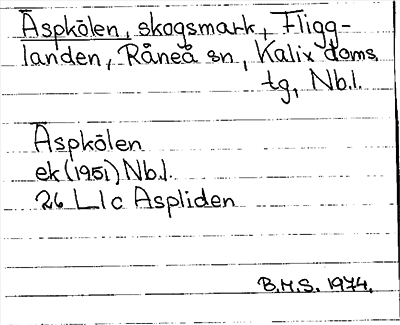 Äspkölen, skogsmark, Fligg-
landen, Råneå sn, Kalix doms.
tg, Nb.l.
Äspkölen
ek (1951) Nb.l.
26 L1c Aspliden
B.M.S. 1974.